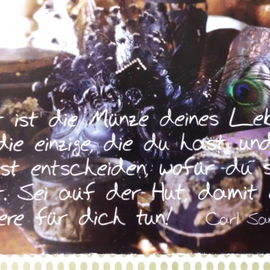 ist die Münze deines Leb
die einzige, die du hast, und
st entscheiden wofür du s
t. Sei auf der Hut, damit
ere für dich tun!
Carl Sa